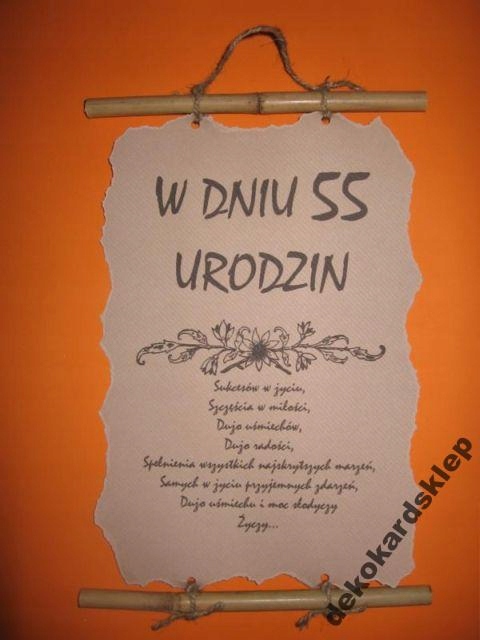 W DNIU 55
URODZIN
Sukcesów w życiu,
Szczęścia w miłości,
Dużo uśmiechów,
Dużo radości,
Spełnienia wszystkich najskrytszych marzeń,
Samych w życiu przyjemnych zdarzeń,
Dużo uśmiechu i moc słodyczy
Życzy...
dekokardsklep